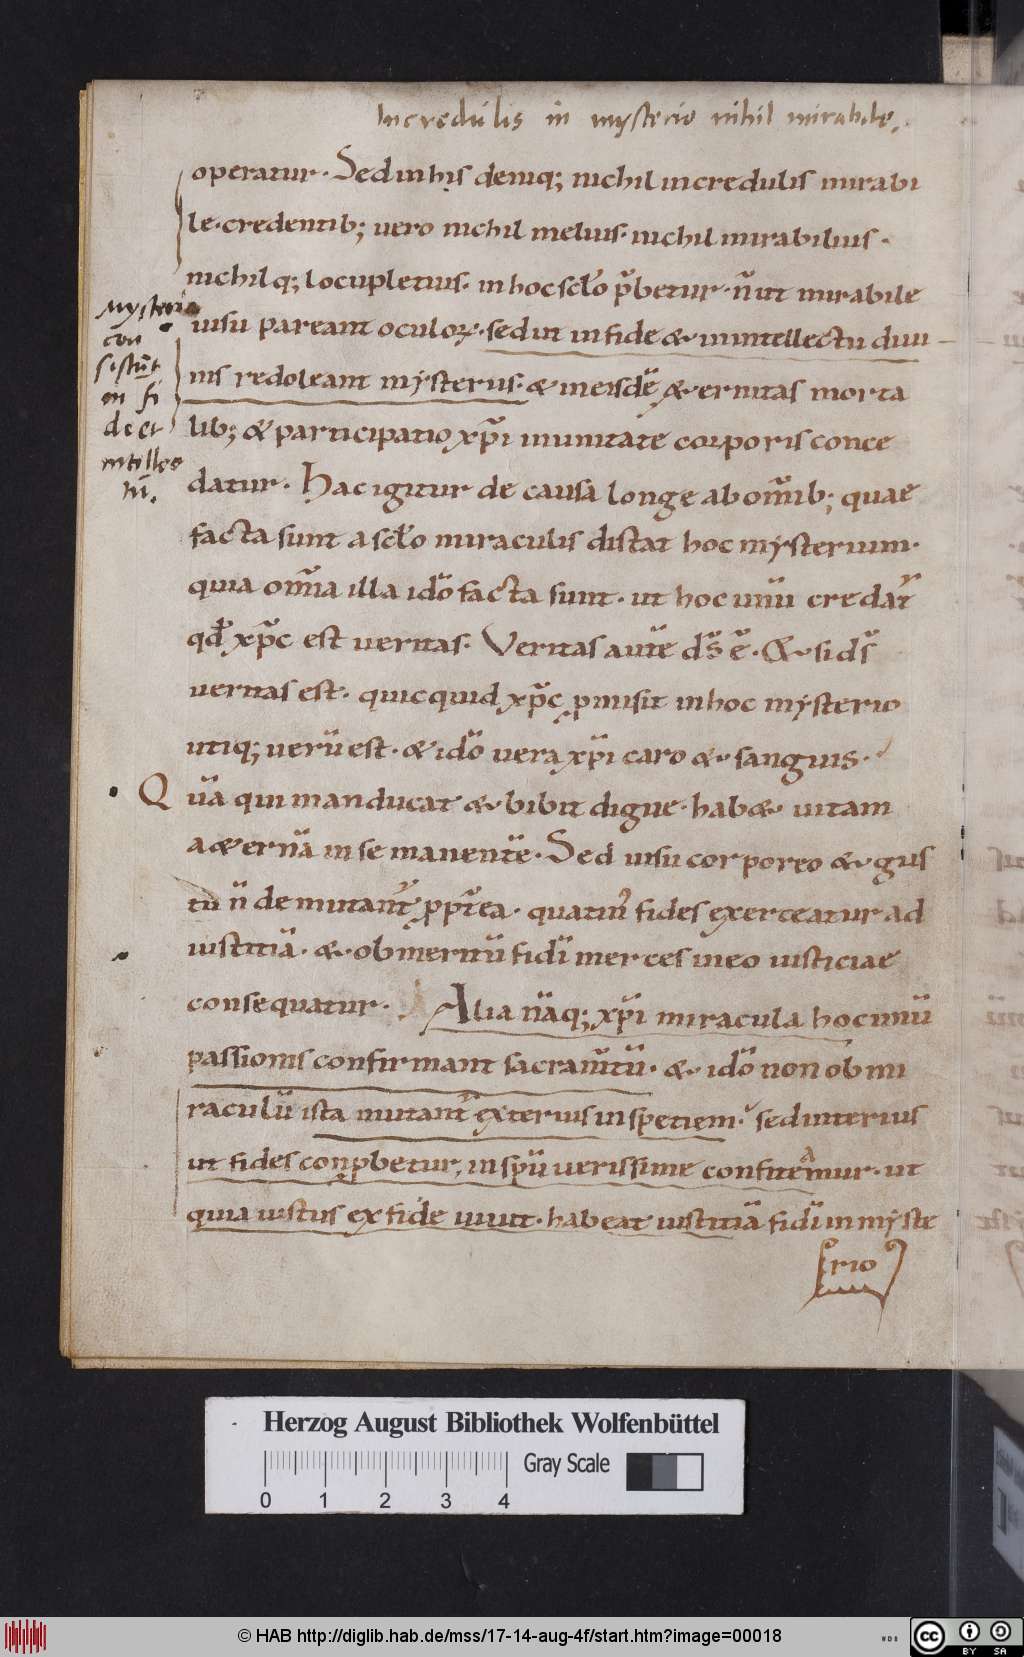 Incredulis in mysterio nihil mirabile.
operatur. Sed in his deniq; nichil incredulis mirabi
le. credentib; uero nichil melius. nichil mirabilius.
nichilq; locupletius. in hoc sclo p̃betur. ñ ut mirabile
Mysteria
con
sistūt
in fi
de et
intellec
tu.
uisu pareant oculoꝝ. sed ut in fide & in intellectu diui
nis redoleant mysteriis. & in eisdē &ernitas morta
lib; & participatio xp̃i in unitate corporis conce
datur. Hac igitur de causa longe ab om̃ib; quae
facta sunt a sclo miraculis distat hoc mysterium.
quia om̃ia illa idō facta sunt. ut hoc unū credat᷑
qđ xp̃c est ueritas. Veritas autē ds̄ ē. & si ds̄
ueritas est. quicquid xp̃c ꝓmisit in hoc mysterio
utiq; uerū est. & idō uera xp̃i caro & sanguis.
Q ūa qui manducat & bibit digne. hab& uitam
a&ernā in se manentē. Sed uisu corporeo & gus
tu ñ demutant᷑ ꝓpt̃ea. quatin᷒ fides exerceatur ad
iustitiā. & ob meritū fidī merces in eo iusticiae
consequatur. Alia nāq; xp̃i miracula hoc unū
passionis confirmant sacram̃tū. & idō non ob mi
raculū ista mutant᷑ exterius in spetiem. sed interius
ut fides conꝓbetur, in spū uerissime confiteamur. ut
quia iustus ex fide uiuit. habeat iustitiā fidī in myste
rio
Herzog August Bibliothek Wolfenbüttel
0 1 2 3 4
Gray Scale
© HAB http://diglib.hab.de/mss/17-14-aug-4f/start.htm?image=00018
WDB
cc BY SA